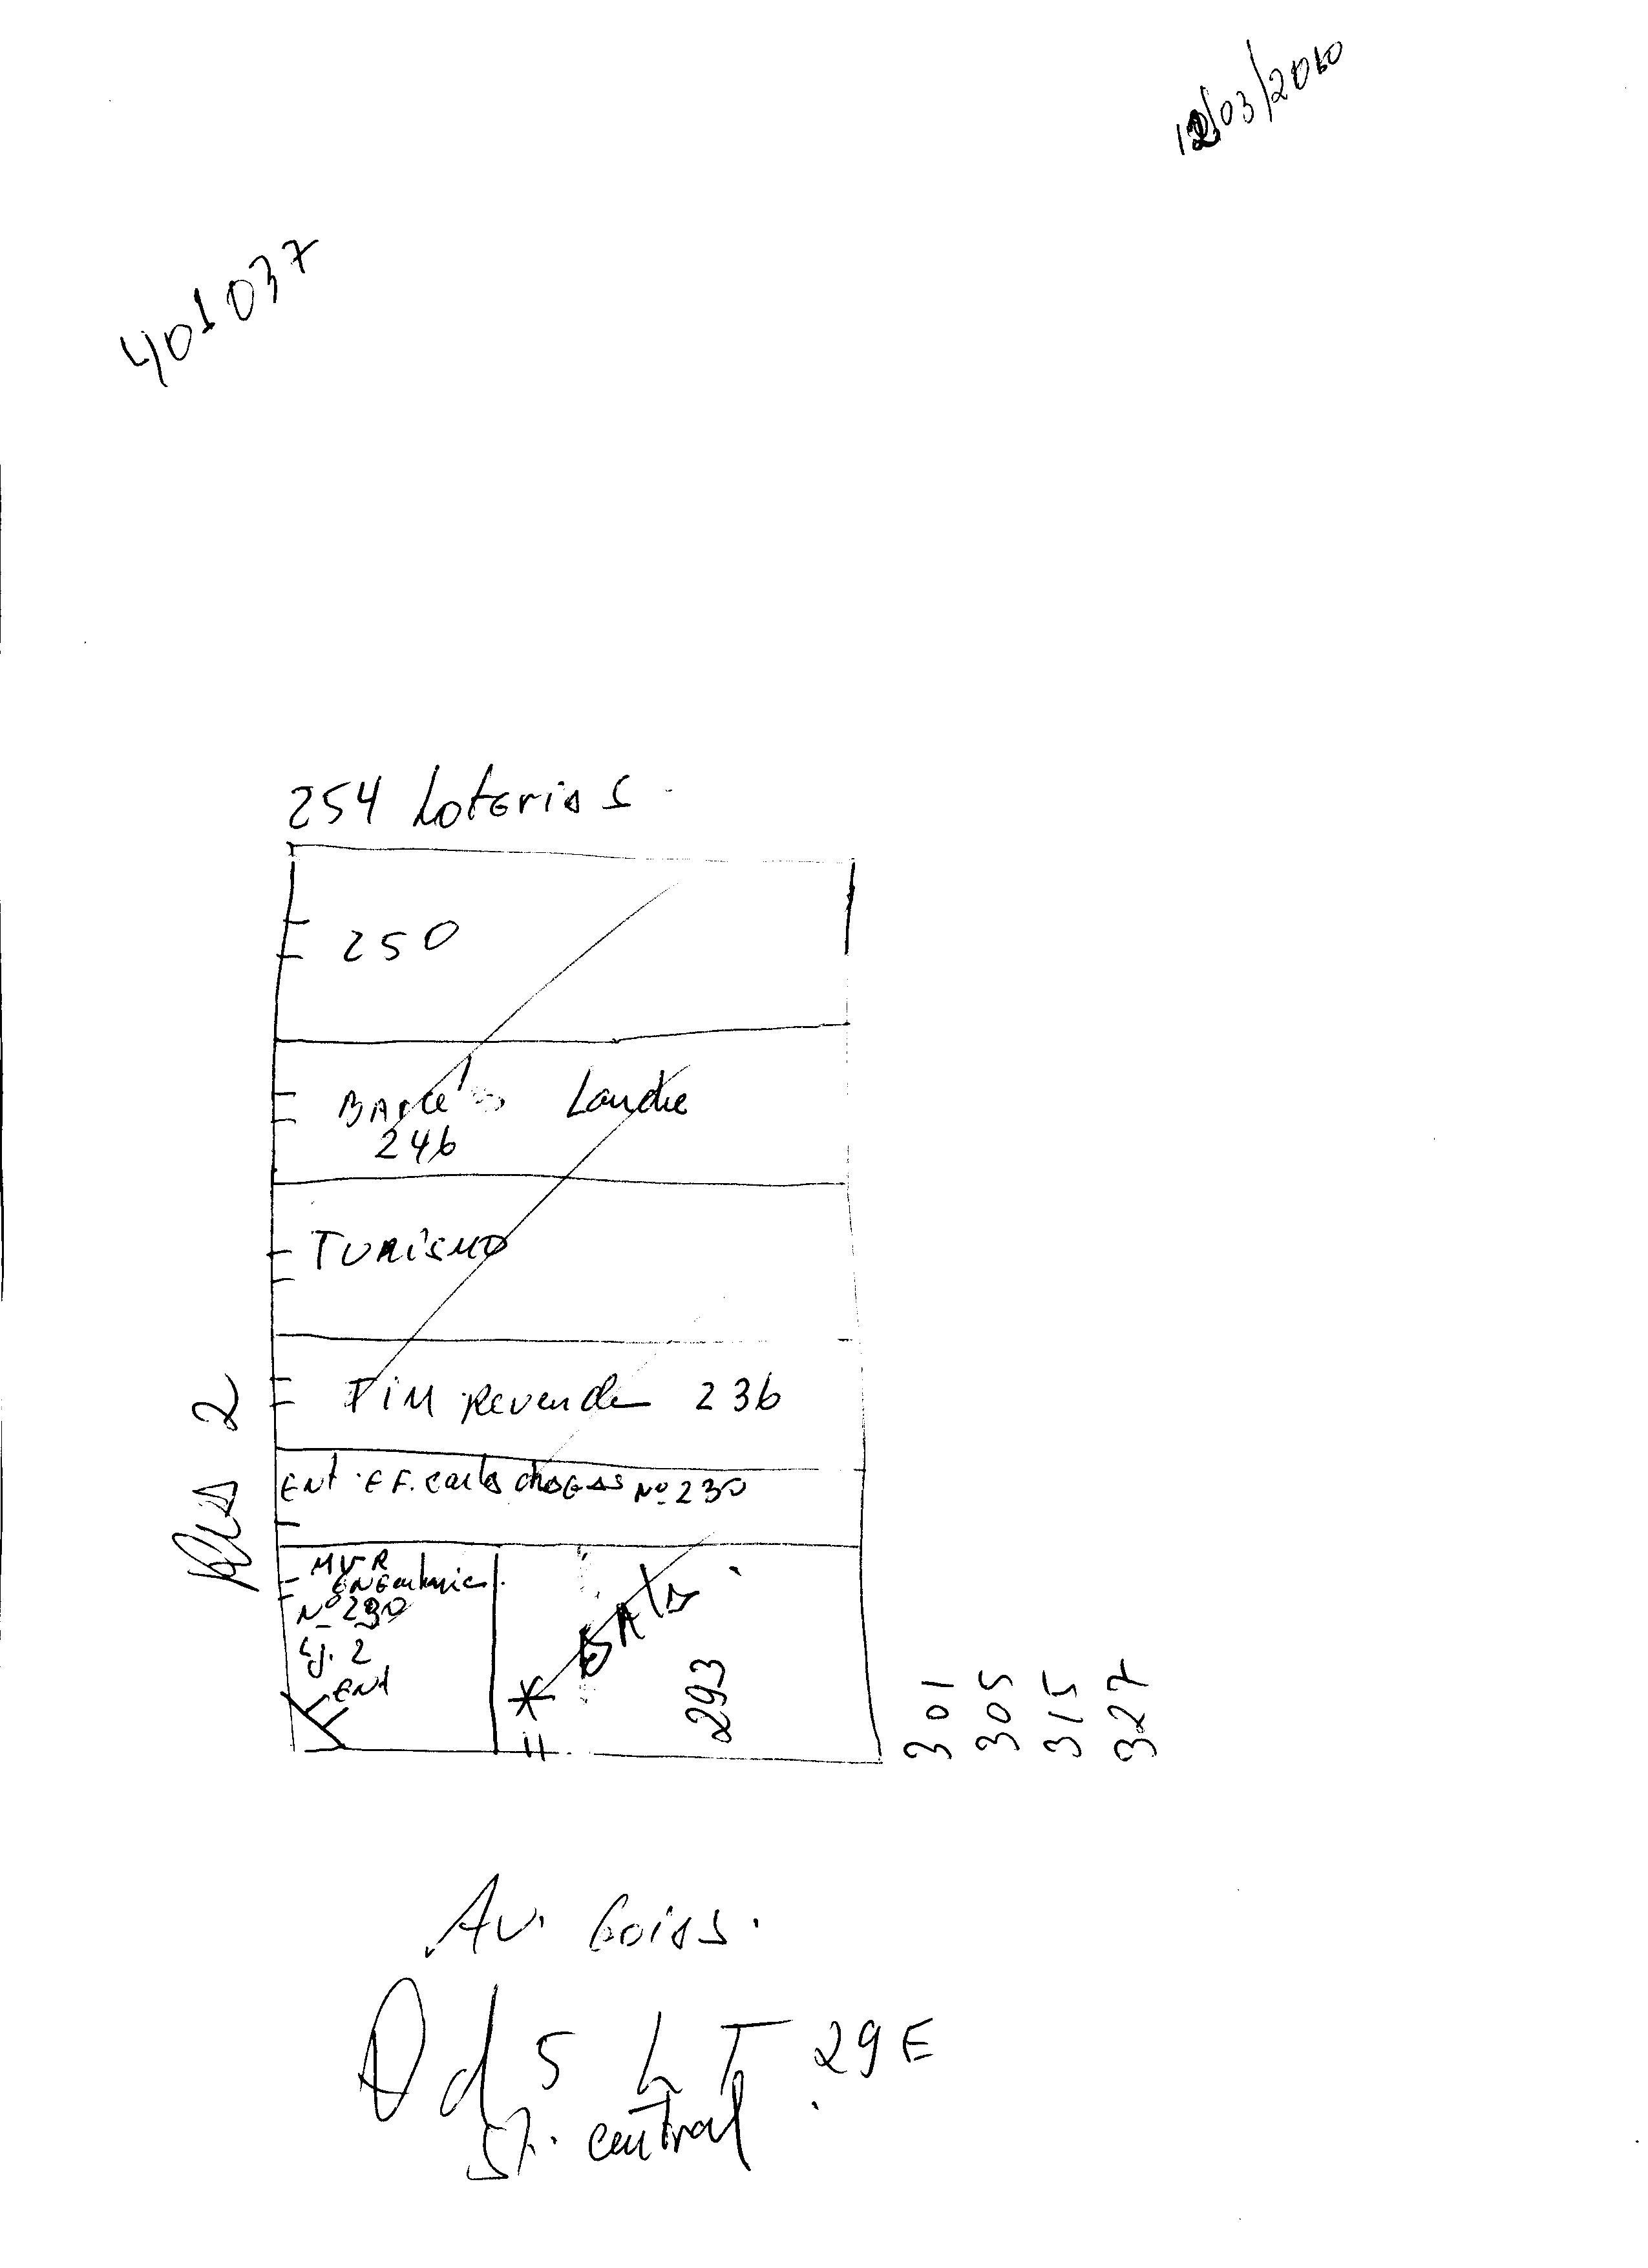 12/03/2010
401037
254 Loterias
250
Lanche
246
TURISMO
TIM Revenda 236
ENT. EF. Carlos chagas Nº 230
MVR
ENGenharia
Nº 230
Lj. 2
ENT
293
301
305
315
327
Rua 2
Av. Goias.
Qd 5 LT. 29E
St. central